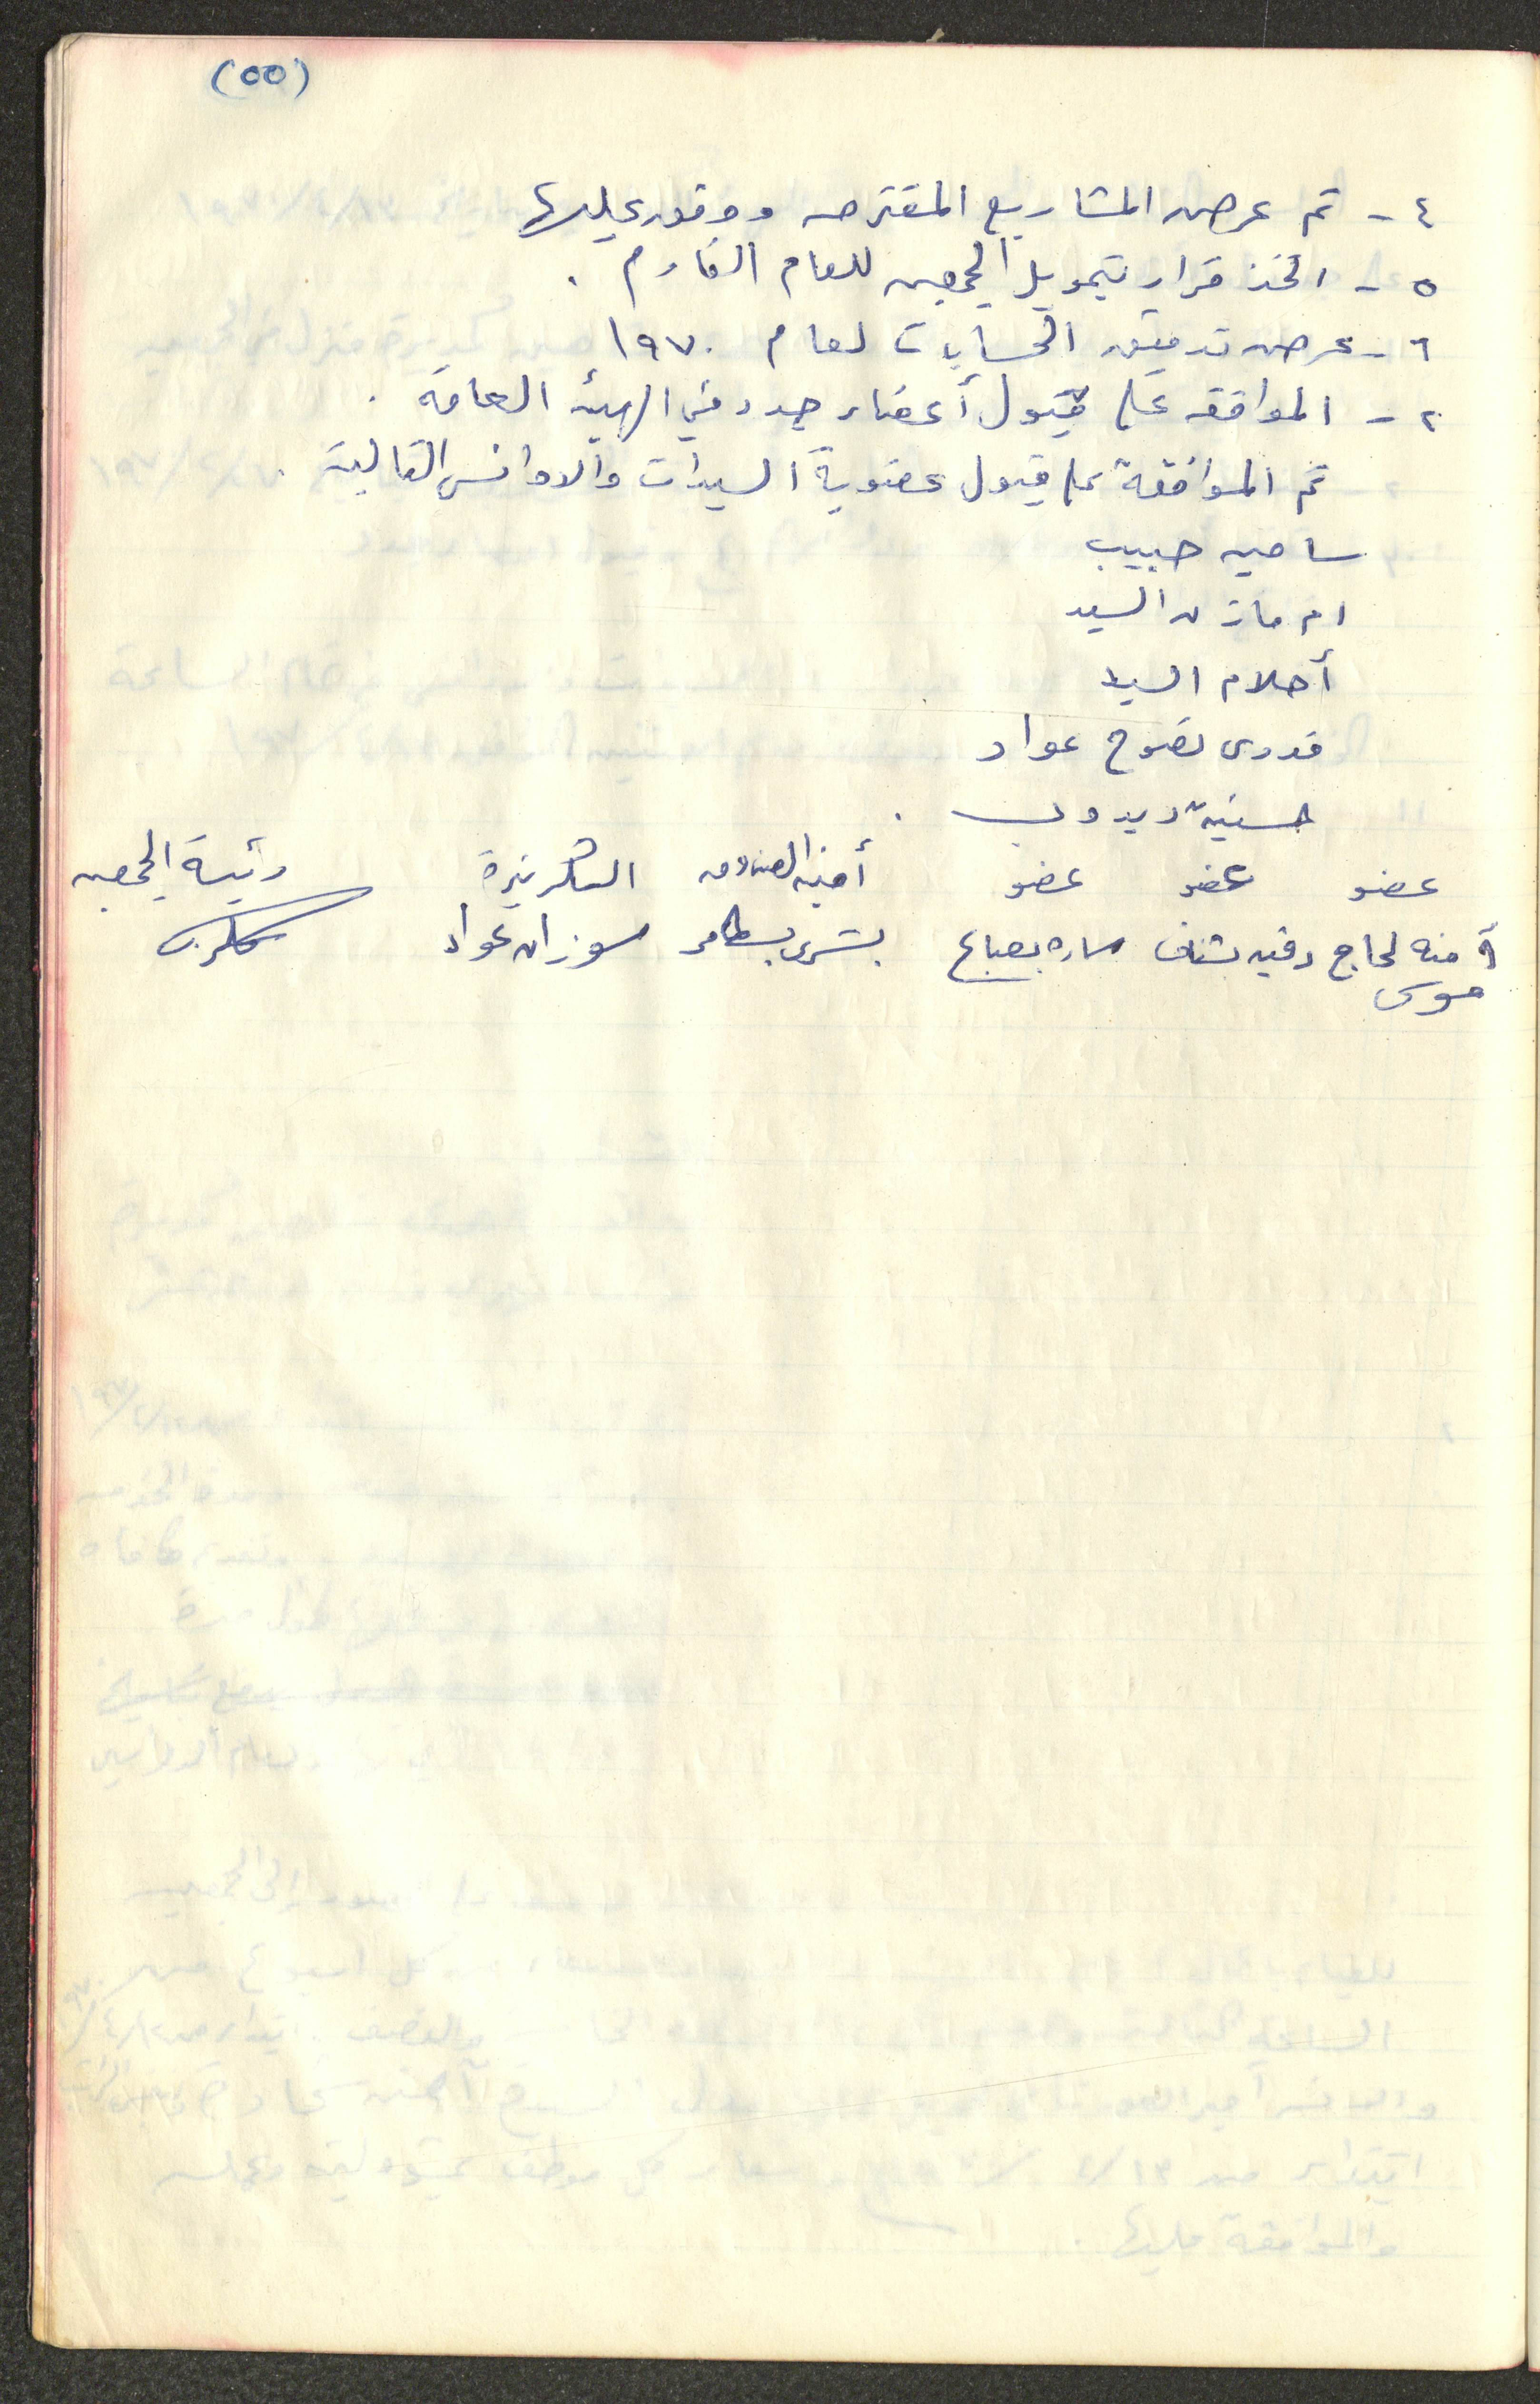 (٥٥)
٤ - تم عرض المشاريع المقترحه ووفق عليها
٥ - اتخذ قرار بتمويل الجمعيه للعام القادم .
٦ - عرض تدقيق الحسابات لعام ١٩٧٠
٢ - الموافقه على قبول أعضاء جدد في الهيئه العامة .
تم الموافقة على قبول عضوية السيدات والاوانس التالية
ساميه حبيب
ام مازن السيد
أحلام السيد
قدرى نصوح عواد
حسنية دیدوب .
عضو عضو عضو أمينة الصندوق السكرتيرة رئيسة الجمعيه
آمنه لحاج رقيه شناق ساره بصباع بشرى بسطامي سوزان عواد
موسى